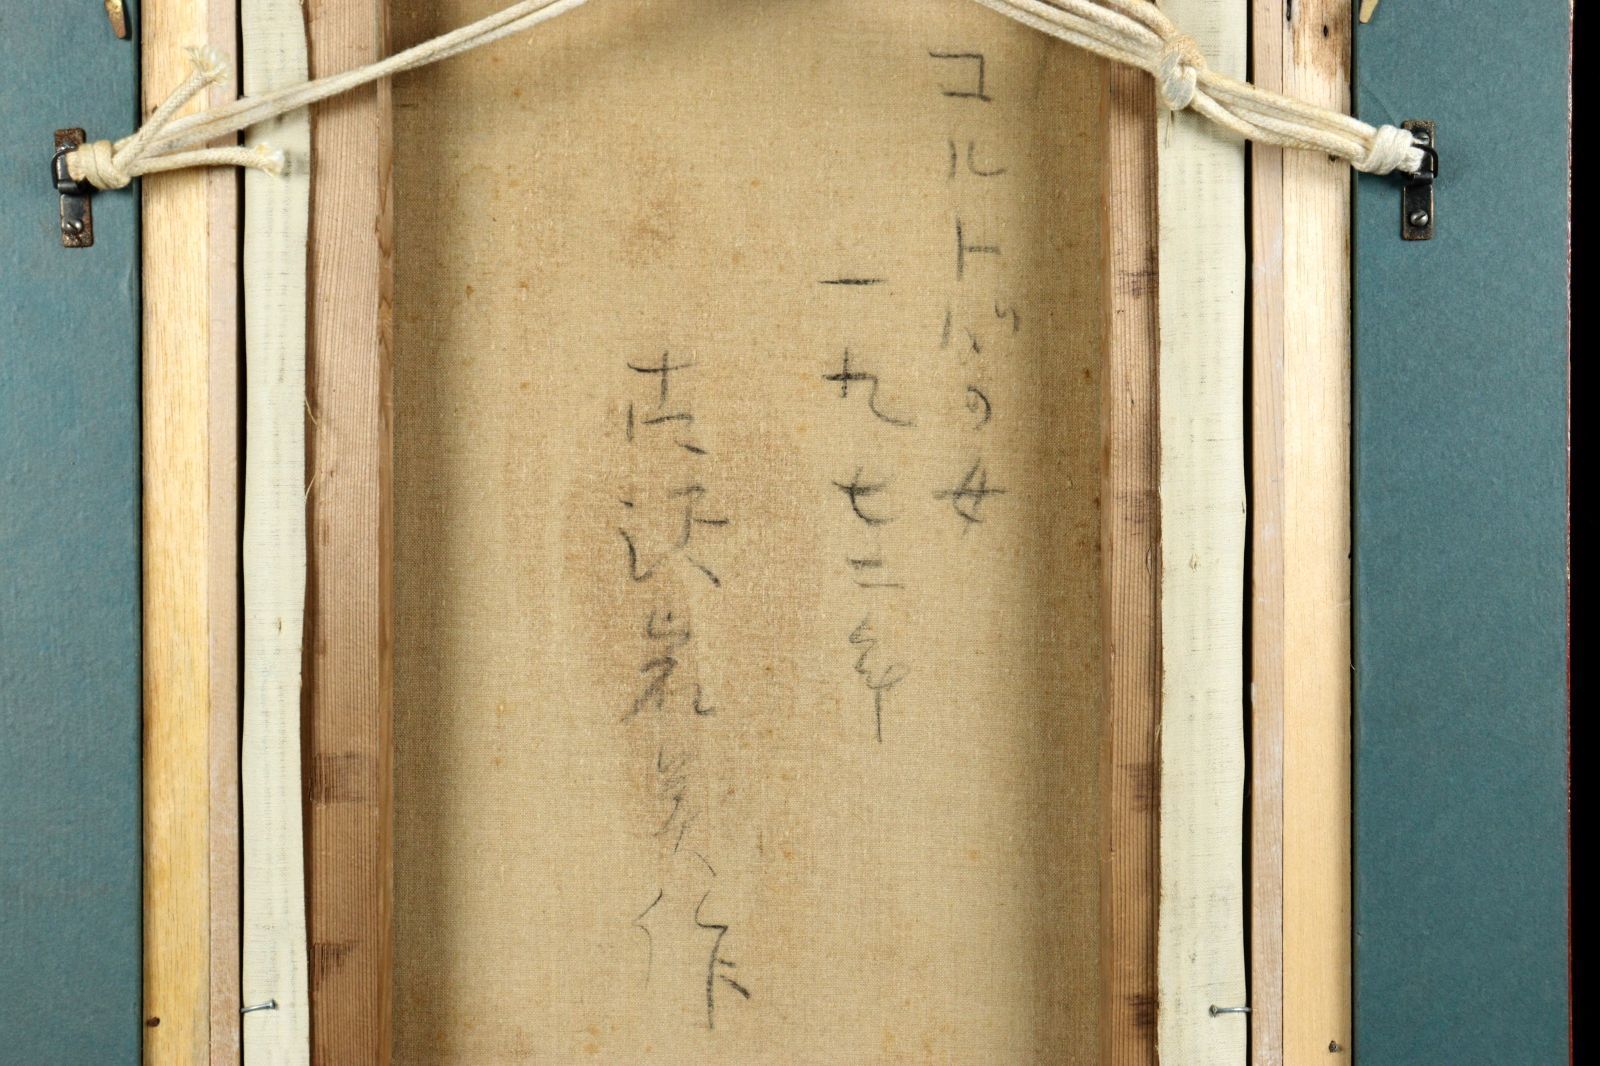 コルドバの女
一九七二年
古沢岩美作